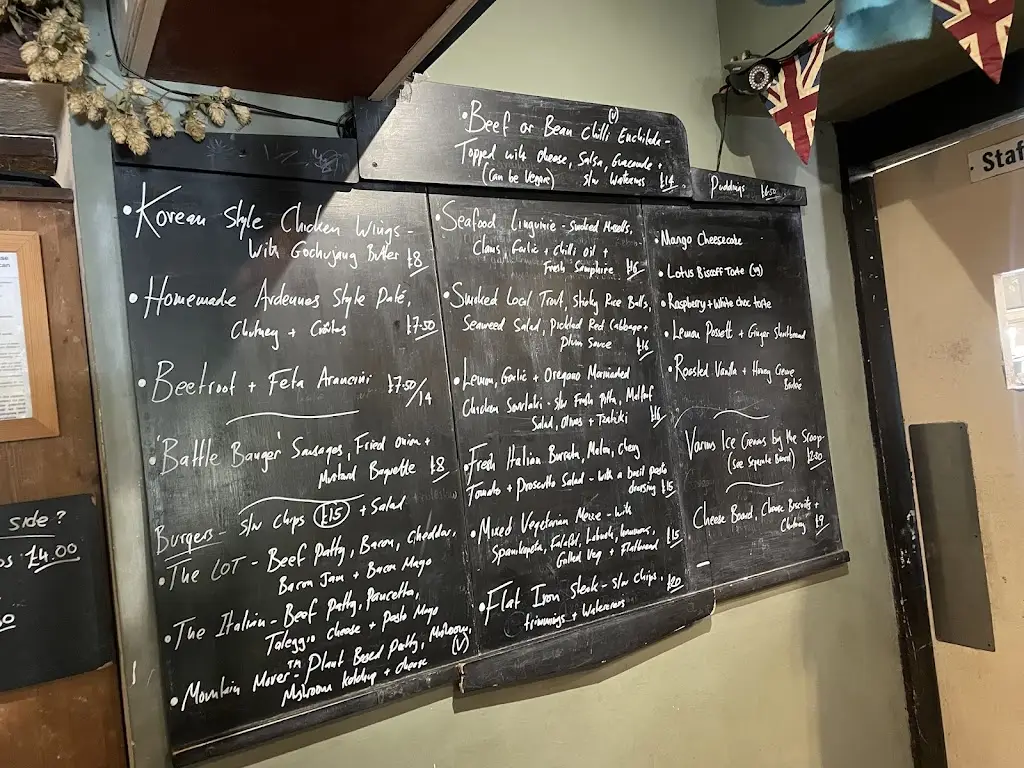 (V)
• Beef or Bean Chilli Enchilada -
Topped with cheese, Salsa, Guacamole +
(Can be Vegan) S/w Watercress £14
• Korean Style Chicken Wings -
With Gochujang Butter £8
• Homemade Ardennes Style Paté,
Chutney + Crostinis £7.50
• Beetroot + Feta Arancini £7.50/14
• 'Battle Banger' Sausages, Fried Onion +
Mustard Baguette £8
Burgers - S/w Chips £15 + Salad
• The LOT - Beef Patty, Bacon, Cheddar,
Bacon Jam + Bacon Mayo
• The Italian - Beef Patty, Pancetta,
Taleggio Cheese + Pesto Mayo
• Mountain Mover™ Plant Based Patty, Mushroom,
Mushroom Ketchup + Cheese (V)
• Seafood Linguinie - Smoked Mussels,
Clams, Garlic + Chilli Oil +
Fresh Samphire £16
• Smoked Local Trout, Sticky Rice Balls,
Seaweed Salad, Pickled Red Cabbage +
Plum Sauce £16
• Lemon, Garlic + Oregano Marinated
Chicken Souvlaki - S/w Fresh Pitta,
Salad, Olives + Tzatziki £16
• Fresh Italian Burrata, Melon, Cherry
Tomato + Prosciutto Salad - with a basil pesto
dressing £15
• Mixed Vegetarian Mezze - with
Spanikopita, Falafel, Labneh, hummus,
Grilled Veg + Flatbread £15
• Flat Iron Steak - S/w Chips,
trimmings + Watercress £20
Puddings £6.50
• Mango Cheesecake
• Lotus Biscoff Torte (vg)
• Raspberry + White choc torte
• Lemon Possett + Ginger Shortbread
• Roasted Vanilla + Honey Creme
Brûlé
Various Ice Creams by the Scoop
(See Separate Board) £2.20
Cheese Board, Cheese Biscuits +
Chutney £9
Side?
£4.00
Staf